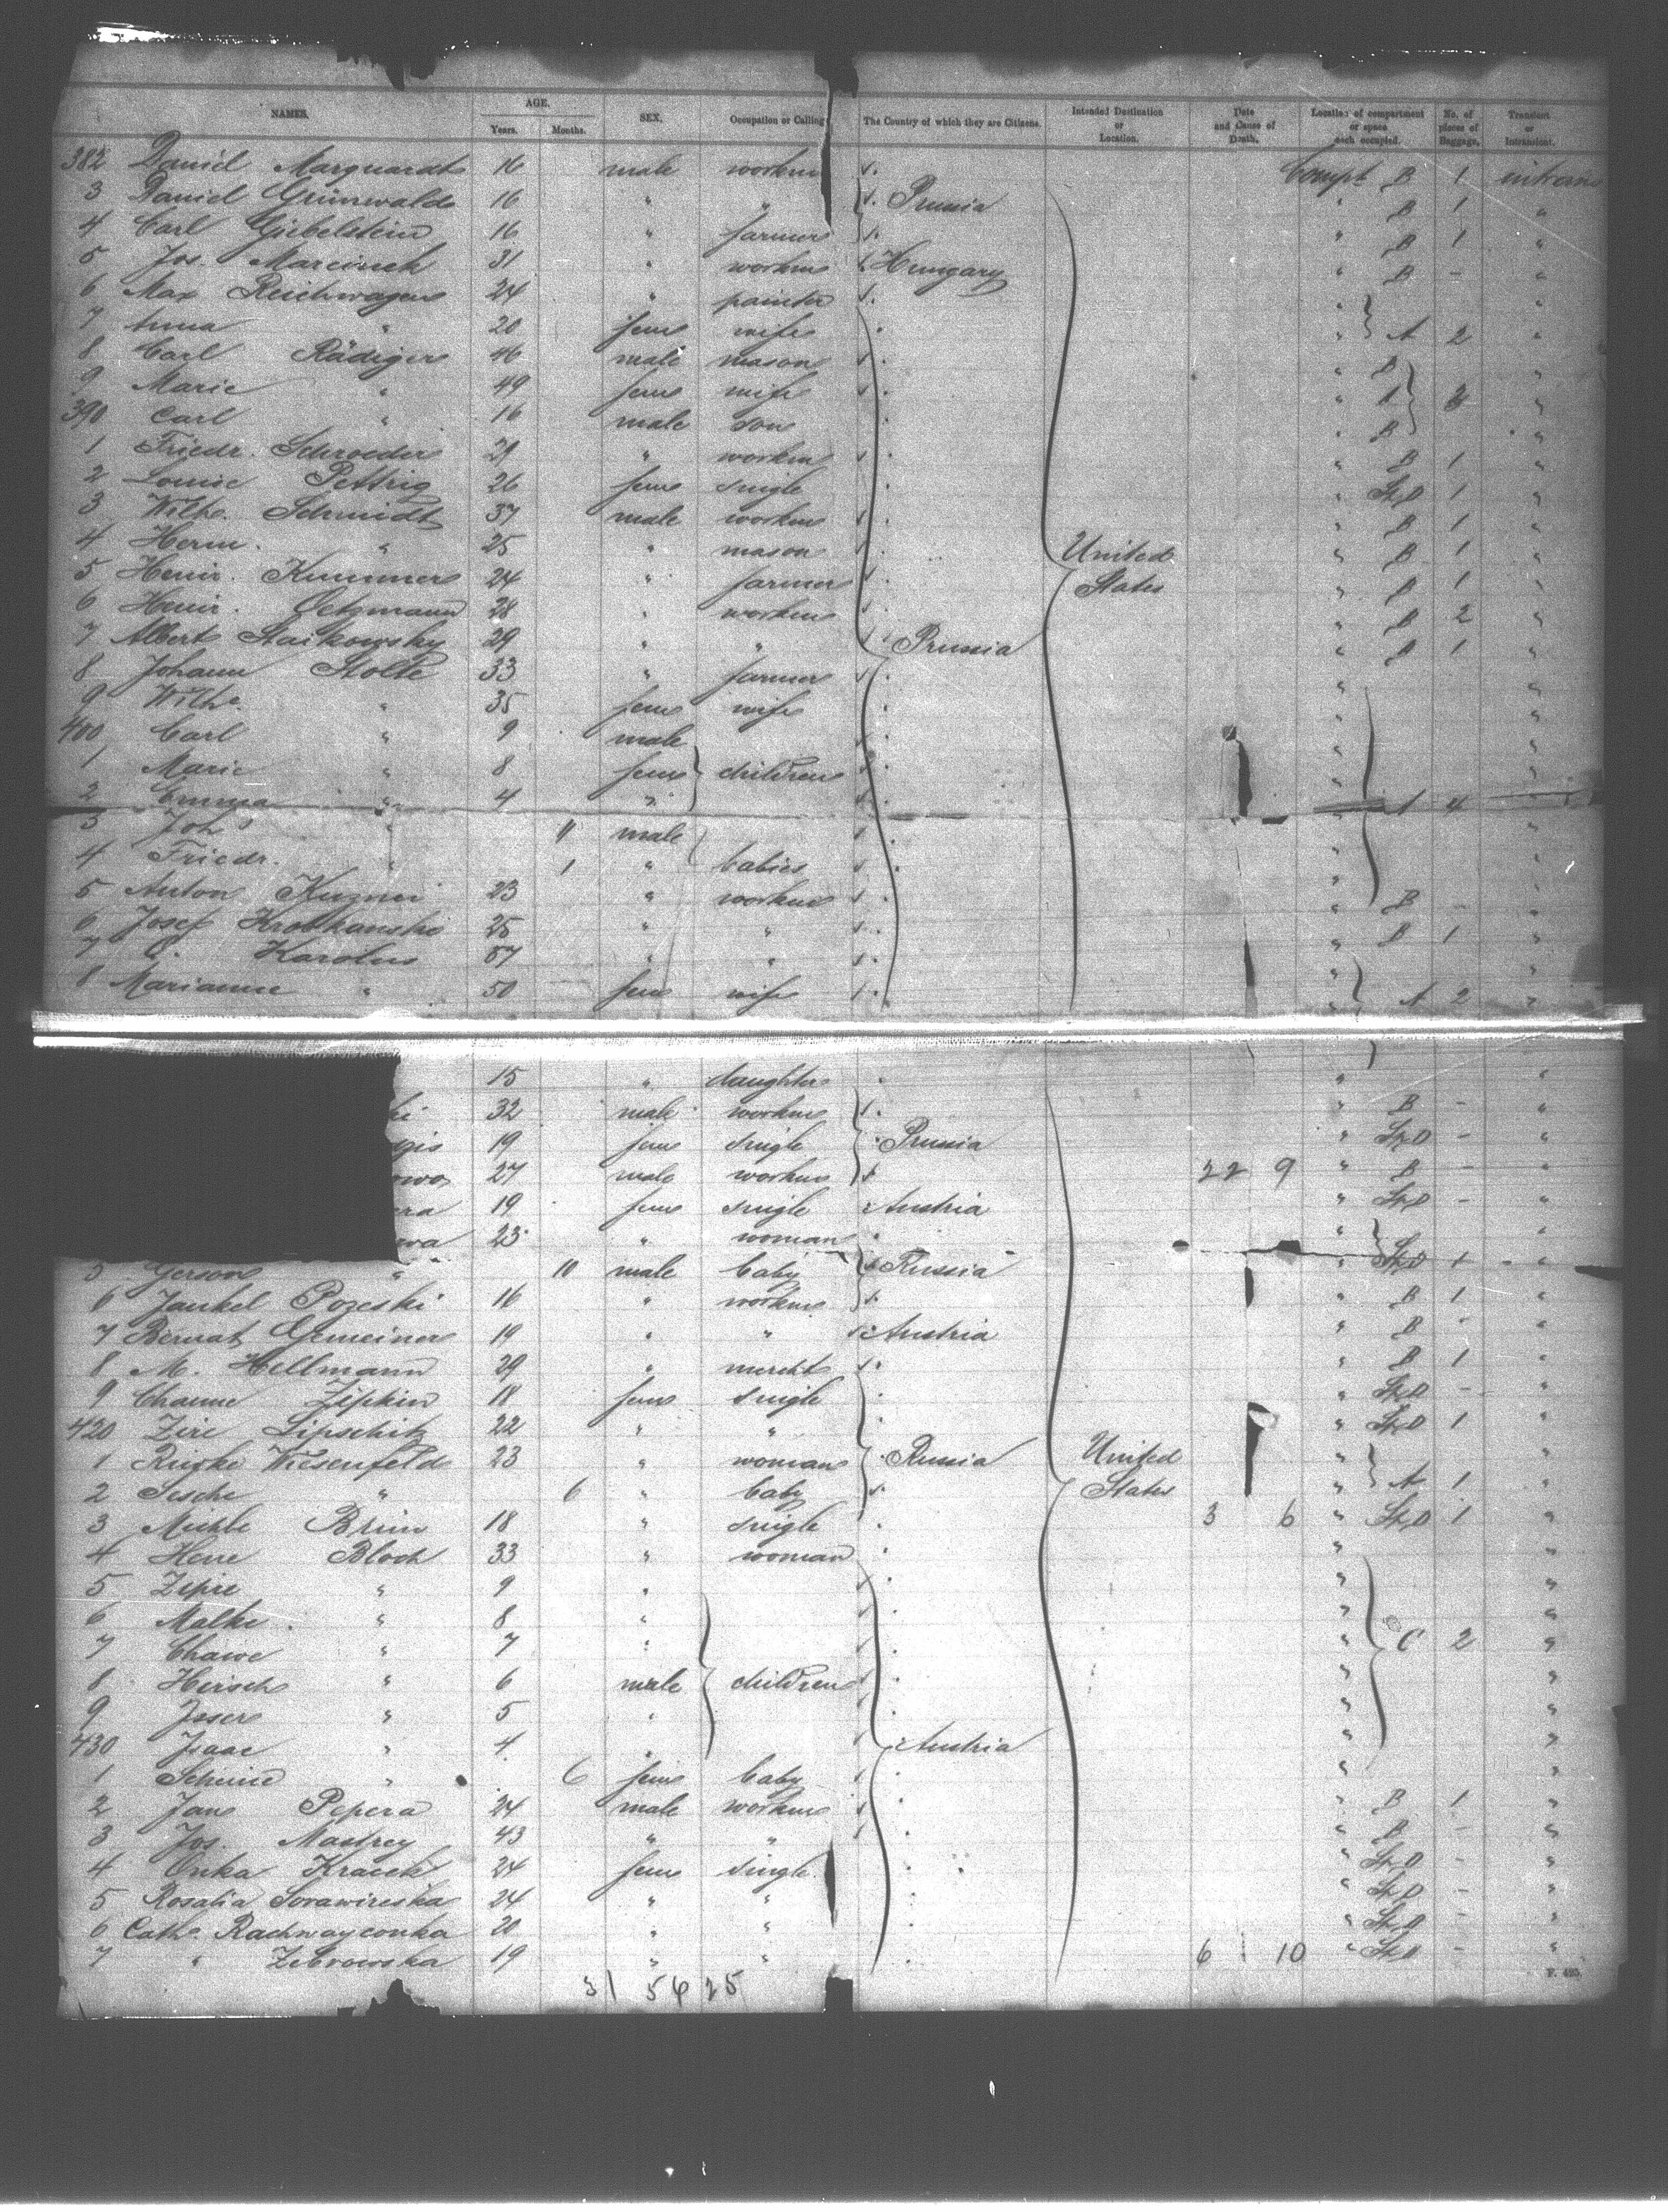 NAMES. AGE. Years. Months. SEX. Occupation or Calling The Country of which they are Citizens. Intended Destination or Location. Date and Cause of Death. Location of compartment or space each occupied. No. of pieces of Baggage. Transient or Intransient.
382 Daniel Marquardt 16 male workm Compt B 1 intrans
3 Daniel Grünwald 16 " " Prussia " B 1 "
4 Carl Giebelstein 16 " farmer " B 1 "
5 Jos. 31 " workm Hungary " B - "
6 Max Reichwagen 24 " painter " "
7 Anna " 20 fem wife " A 2 "
8 Carl Rädiger 46 male mason " B "
9 Marie " 49 fem wife " A "
390 Carl " 16 male son " B "
1 Friedr. Schroeder 29 " workm " B 1 "
2 Louise Pettrig 26 fem single " St,D 1 "
3 Wilh. Schmidt 37 male workm " B 1 "
4 Herm. " 25 " mason United " B 1 "
5 Heinr. Kummer 24 " farmer States " B 1 "
6 Heinr. Oetzmann 28 " workm " B 2 "
7 Albert Staikowsky 29 " " Prussia " 1 "
8 Johann Stolte 33 " farmer " "
9 Wilhe. " 35 fem wife " "
400 Carl " 9 male " "
1 Marie " 8 fem children " "
2 Emma " 4 " A 4 "
3 Joh. " 11 male "
4 Friedr. " 1 " babies " "
5 Anton 23 " workm " B - "
6 Josef 25 " " " B 1 "
7 Karolus 57 " " " "
8 Marianne " 50 fem wife " A 2 "
15 " daughter " "
ki 32 male workm " B - "
19 fem single Prussia " St,D - "
27 male workm 22 9 " B - "
era 19 fem single Austria " St,D - "
wa 23 " woman "
5 Gerson " 10 male baby Russia " St,D 1 "
6 Jankel Pozeski 16 " workm " B 1 "
7 Bernat Gemeiner 19 " " Austria " B - "
8 M. Hellmann 29 " mercht " B 1 "
9 Zipkin 18 fem single " St,D - "
420 Zire Lipschitz 22 " " " St,D 1 "
1 Wiesenfeld 23 " woman Russia United " "
2 " 6 " baby States " A 1 "
3 Michle Brim 18 " single 3 6 " St,D 1 "
4 Hene Bloch 33 " woman " "
5 Zipre " 9 " " "
6 Malke " 8 " " "
7 Chawe " 7 " " C 2 "
8 Hirsch " 6 male children " "
9 Isser " 5 " " "
430 Isaac " 4 " Austria " "
1 " 6 fem baby " "
2 Jan Pepera 24 male workm " B 1 "
3 Jos. 43 " " " B - "
4 24 fem single " St,D - "
5 Rosalia 24 " " " St,D - "
6 Cath. 20 " " " St,D - "
7 " Zebrowska 19 " " 6 10 " St,D - "
F. 425.
31 56 25